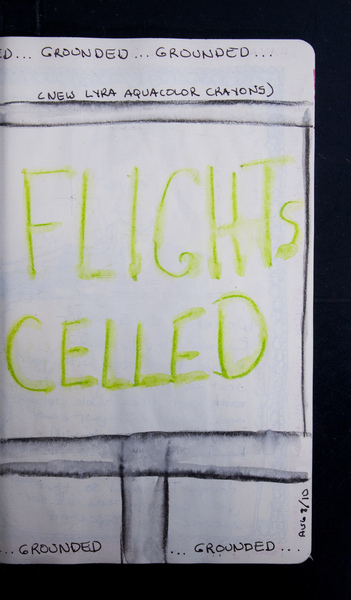 ED... GROUNDED... GROUNDED...
(NEW LYRA AQUACOLOR CRAYONS)
FLIGHTS
CELLED
AUG 8/10
...GROUNDED ...GROUNDED...